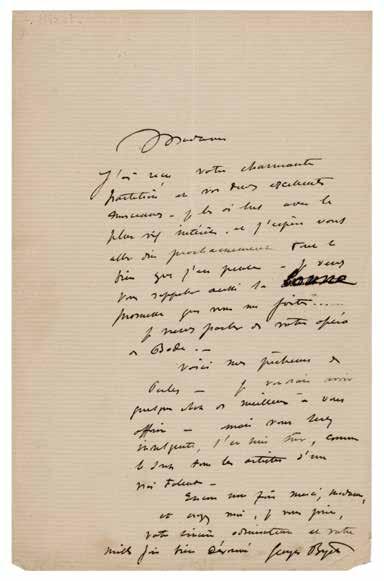 Bizet.
Madame
J'ai reçu votre charmante
partition et vos deux excellents
morceaux - je les ai lus avec le
plus vif intérêt, et j'espère vous
aller dire prochainement tout le
bien que j'en pense - Je veux
vous rappeler aussi la bonne
promesse que vous me fîtes.....
Je veux parler de votre opéra
de Bade. -
Voici mes pêcheurs de
Perles - Je voudrais avoir
quelque chose de meilleur à vous
offrir - mais vous serez
indulgente, j'en suis sûr, comme
le sont tous les artistes d'un
vrai talent -
Encore une fois merci, madame,
et croyez moi, je vous prie,
votre sincère admirateur et votre
mille fois bien dévoué Georges Bizet